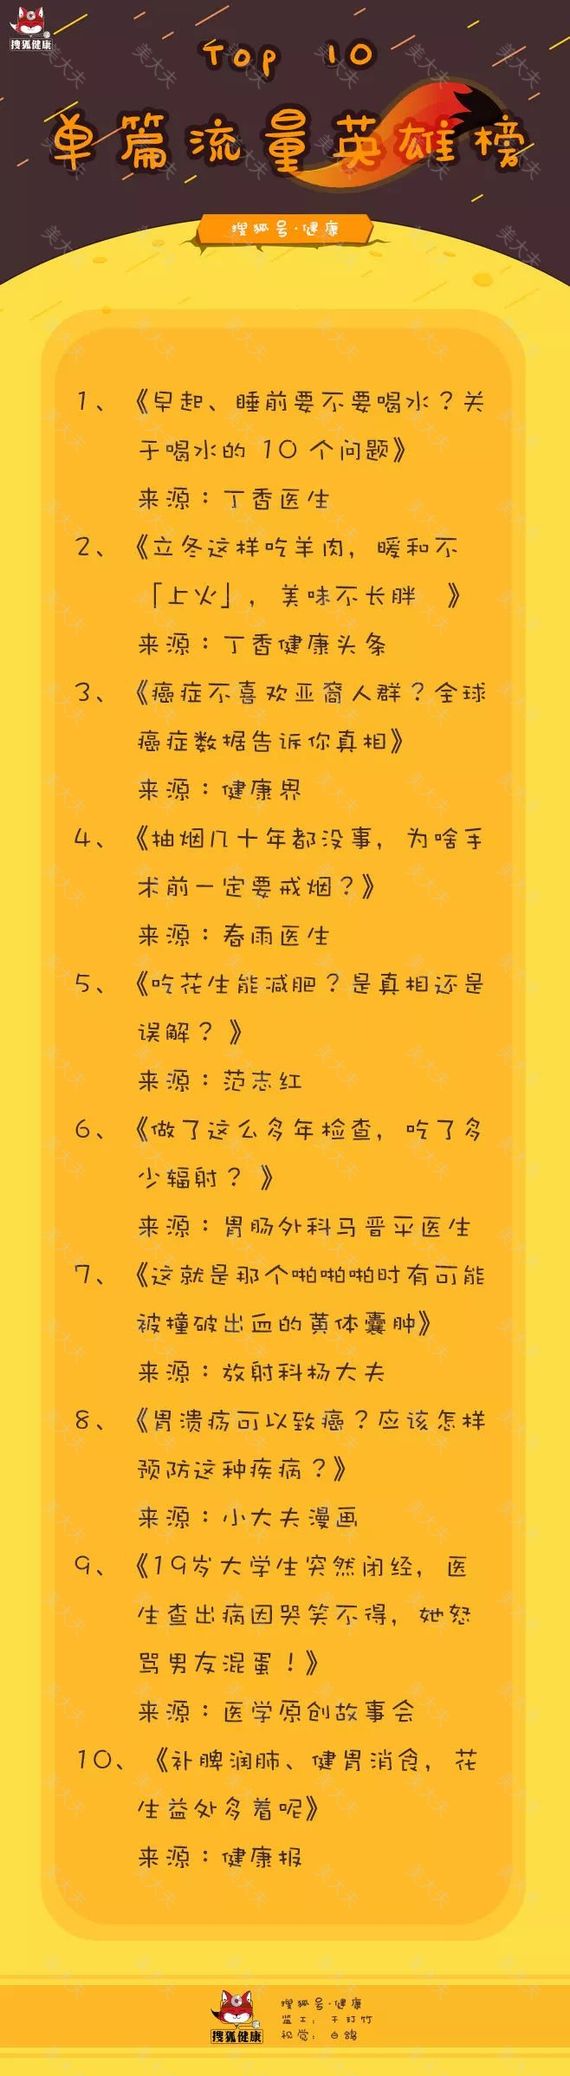 搜狐健康
Top 10
单篇流量英雄榜
搜狐号·健康
1、《早起、睡前要不要喝水？关
于喝水的 10 个问题》
来源：丁香医生
2、《立冬这样吃羊肉，暖和不
「上火」，美味不长胖 》
来源：丁香健康头条
3、《癌症不喜欢亚裔人群？全球
癌症数据告诉你真相》
来源：健康界
4、《抽烟几十年都没事，为啥手
术前一定要戒烟？》
来源：春雨医生
5、《吃花生能减肥？是真相还是
误解？ 》
来源：范志红
6、《做了这么多年检查，吃了多
少辐射？ 》
来源：胃肠外科马晋平医生
7、《这就是那个啪啪啪时有可能
被撞破出血的黄体囊肿》
来源：放射科杨大夫
8、《胃溃疡可以致癌？应该怎样
预防这种疾病？》
来源：小大夫漫画
9、《19岁大学生突然闭经，医
生查出病因哭笑不得，她怒
骂男友混蛋！》
来源：医学原创故事会
10、《补脾润肺、健胃消食，花
生益处多着呢》
来源：健康报
搜狐健康
搜狐号·健康
监工：于玎竹
视觉：白鸽
美大夫